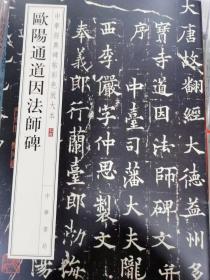 歐陽通道因法師碑
中華經典碑帖彩色放大本
中華書局
大唐故翻經大德
寶寺道因法師碑文
中臺司藩大夫
西李儼字仲思製文
郎行蘭臺郎